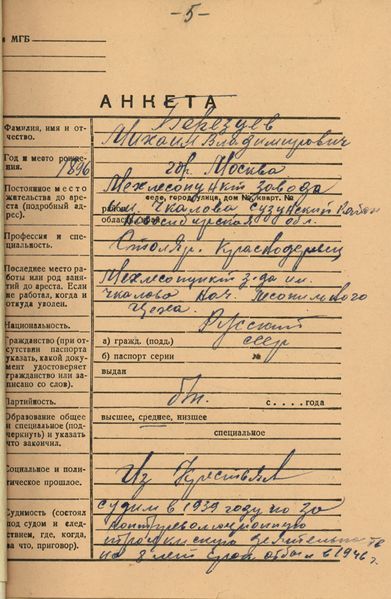 -5-
МГБ
АНКЕТА
Фамилия, имя и от-
чество.
Михаил Владимирович
Год и место рожде-
ния.
1896
гор. Москва
Постоянное место
жительства до аре-
ста (подробный ад-
рес).
Мехлесопункт завода
село, город, улица, дом №, кварт. №
им. Чкалова Сузунский район
район
область
Новосибирская обл.
Профессия и спе-
циальность.
Столяр, Краснодеревец
Последнее место рабо-
ты или род заня-
тий до ареста. Если
не работал, когда и
откуда уволен.
Мехлесопункт з-да им.
Чкалова нач. лесопильного
цеха.
Национальность.
Русский
Гражданство (при от-
сутствии паспорта
указать, какой доку-
мент удостоверяет
гражданство или за-
писано со слов).
а) гражд. (подд.) СССР
б) паспорт серии №
выдан
Партийность.
б/п. с . . . . года
Образование общее
и специальное (под-
черкнуть) и указать
что закончил.
высшее, среднее, низшее
специальное
Социальное и поли-
тическое прошлое.
Из Крестьян
Судимость (состоял
под судом и след-
ствием, где, когда,
за что, приговор).
судим в 1939 году по за
контрреволюционную
троцкистскую деятельность
на 8 лет срок отбыл в 1946 г.